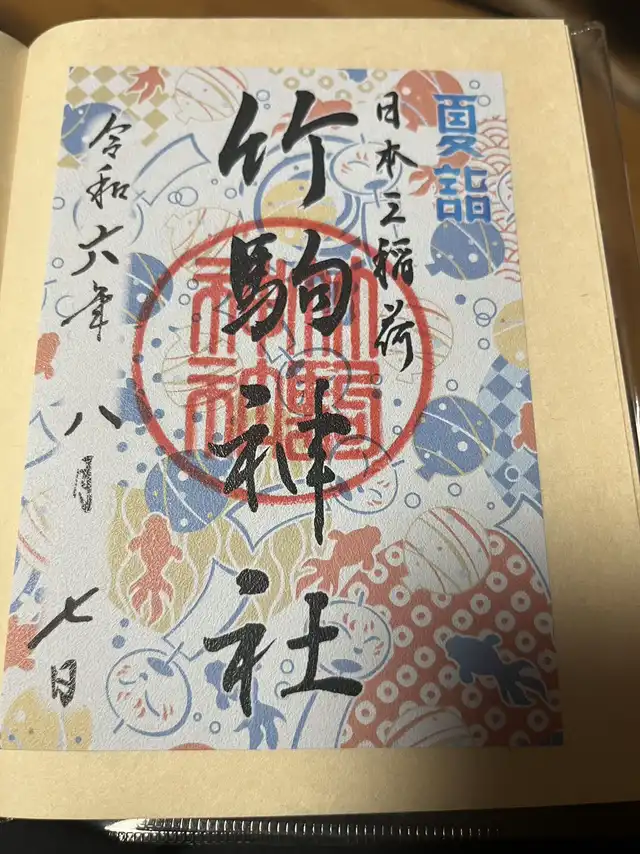 夏詣
日本三稲荷
竹駒神社
竹駒神社
令和六年
八月
七日